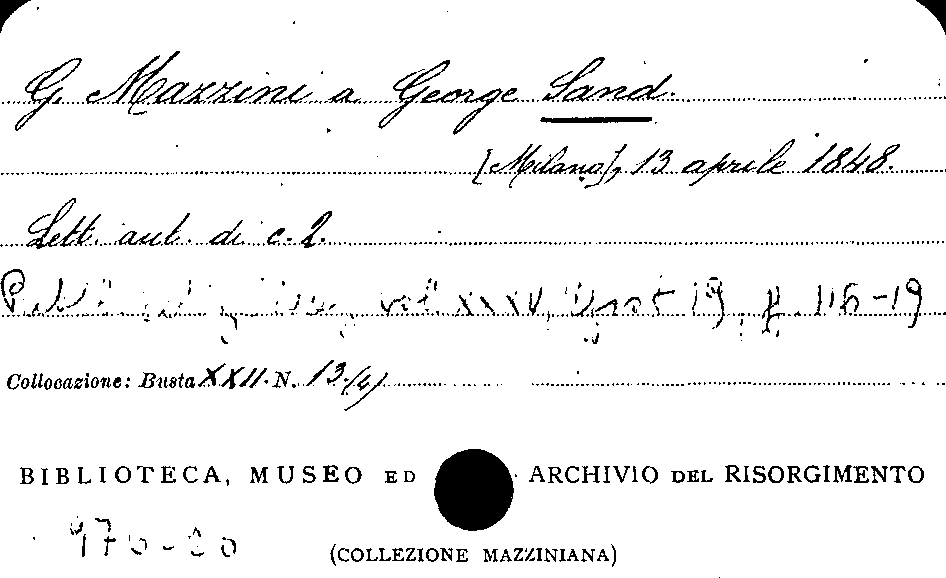 G. Mazzini a George Sand.
[Milano], 13 aprile 1848.
Lett. aut. di c. 2.
vol. XXXV, 19, p. 116-19
Collocazione: Busta XXII. N. 13 (4)
BIBLIOTECA, MUSEO ED ARCHIVIO DEL RISORGIMENTO
(COLLEZIONE MAZZINIANA)